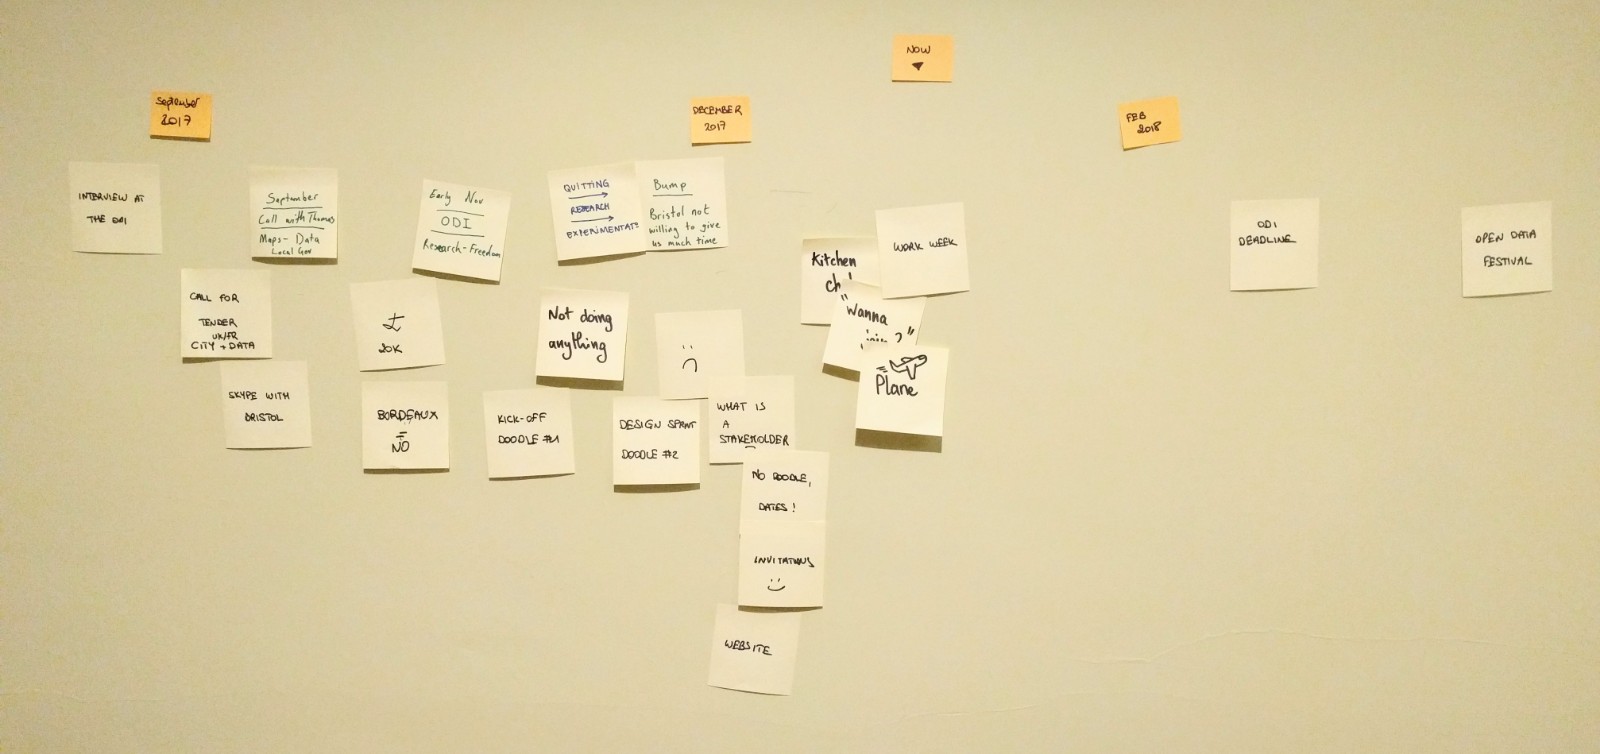 NOW
September
2017
DECEMBER
2017
FEB
2018
INTERVIEW AT
THE ODI
September
Call with Thomas
Maps- Data
Local Gov
Early Nov
ODI
Research-Freedom
QUITTING
RESEARCH
EXPERIMENTATE
Bump
Bristol not
willing to give
us much time
Kitchen
WORK WEEK
ODI
DEADLINE
OPEN DATA
FESTIVAL
CALL FOR
TENDER
UK/FR
CITY + DATA
£
20K
Not doing
anything
"Wanna
?"
Plane
SKYPE WITH
BRISTOL
BORDEAUX
=
NO
KICK-OFF
DOODLE #1
DESIGN SPRINT
DOODLE #2
WHAT IS
A
STAKEHOLDER
NO DOODLE,
DATES!
INVITATIONS
WEBSITE